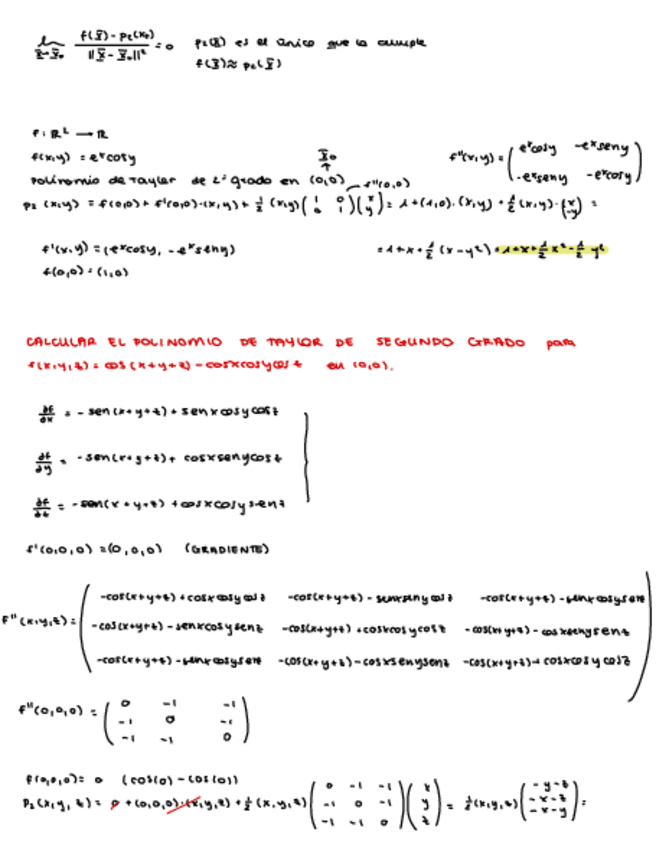 lim x̄→x̄₀ (f(x̄) - p₂(x₀)) / ||x̄ - x̄₀||² = 0   p₂(x̄) es el único que la cumple
f(x̄) ≈ p₂(x̄)
f: ℝ² → ℝ
f(x,y) = eˣcosy   x̄₀   f''(x,y) = ( eˣcosy  -eˣseny
-eˣseny  -eˣcosy )
Polinomio de Taylor de 2º grado en (0,0)   f''(0,0)
p₂(x,y) = f(0,0) + f'(0,0)·(x,y) + 1/2 (x,y) (1 0 / 0 1) (x / y) = 1 + (1,0)·(x,y) + 1/2 (x,y)·(x / -y) =
f'(x,y) = (eˣcosy, -eˣseny)   = 1 + x + 1/2 (x - y²) = 1 + x + 1/2 x² - 1/2 y²
f(0,0) = (1,0)
CALCULAR EL POLINOMIO DE TAYLOR DE SEGUNDO GRADO para
f(x,y,z) = cos(x+y+z) - cosxcosycosz en (0,0).
∂f/∂x = -sen(x+y+z) + senxcosycosz
∂f/∂y = -sen(x+y+z) + cosxsenycosz
∂f/∂z = -sen(x+y+z) + cosxcosysenz
f'(0,0,0) = (0,0,0)   (GRADIENTE)
-cos(x+y+z)+cosxcosycosz   -cos(x+y+z)-senxsenycosz   -cos(x+y+z)-senxcosysenz
f''(x,y,z) = -cos(x+y+z)-senxcosysenz   -cos(x+y+z)+cosxcosycosz   -cos(x+y+z)-cosxsenysenz
-cos(x+y+z)-senxcosysenz   -cos(x+y+z)-cosxsenysenz   -cos(x+y+z)+cosxcosycosz
f''(0,0,0) = ( 0  -1  -1
-1  0  -1
-1  -1  0 )
f(0,0,0) = 0   (cos(0) - cos(0))
P₂(x,y,z) = 0 + (0,0,0)·(x,y,z) + 1/2 (x,y,z) (0 -1 -1 / -1 0 -1 / -1 -1 0) (x / y / z) = 1/2 (x,y,z) (-y-z / -x-z / -x-y) =